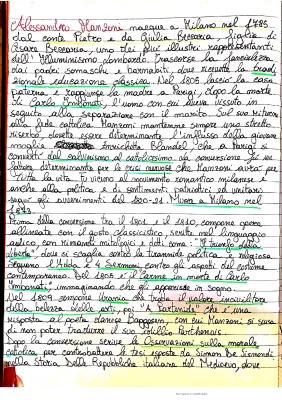 Alessandro Manzoni nacque a Milano nel 1785
dal conte Pietro e da Giulia Beccaria, figlia di
Cesare Beccaria, uno dei più illustri rappresentanti
dell'Illuminismo lombardo. Trascorse la fanciullezza
dai padri somaschi e barnabiti, dove ricevette la tradi
zionale educazione classica. Nel 1805 lasciò la casa
paterna e raggiunse la madre a Parigi, dopo la morte
di Carlo Imbonati, l'uomo con cui aveva vissuto in
seguito alla separazione con il marito. Sul suo ritorno
alla fede cattolica Manzoni mantenne sempre uno stretto
riserbo, dovette essere determinante l'influsso della giovane
moglie Enrichetta Blondel, che a Parigi si
convertì dal calvinismo al cattolicesimo. La conversione fu un
fattore determinante per le crisi nervose che Manzoni aveva per
tutta la vita. Fu vicino al movimento romantico milanese e
anche alla politica e di sentimenti patriottici ed unitari
seguì gli avvenimenti del 1820-21. Muore a Milano nel
1873
Prima della conversione tra il 1801 e il 1810, compone opere
allineate con il gusto classicistico, scritte nel linguaggio
aulico, con rimandi mitologici e dotti come: "Il trionfo della
libertà", dove si scaglia contro la tirannide politica e religiosa
Seguono l'Adda e 4 Sermoni, contro gli aspetti del costume
contemporaneo. Nel 1805 è il Carme in morte di Carlo
Imbonati, immaginando che gli apparisse in sogno.
Nel 1809 compone Urania che tratta il valore incivilitore
della bellezza delle arti, poi "A Parteneide" che è una
risposta al poeta danese Baggesen, con cui Manzoni si scusa
di non poter tradurre il suo idillio Parthenais.
Dopo la conversione scrive le Osservazioni sulla morale
cattolica per controbattere le tesi esposte da Simon De Sismondi
nella Storia delle Repubbliche italiane del Medioevo, dove